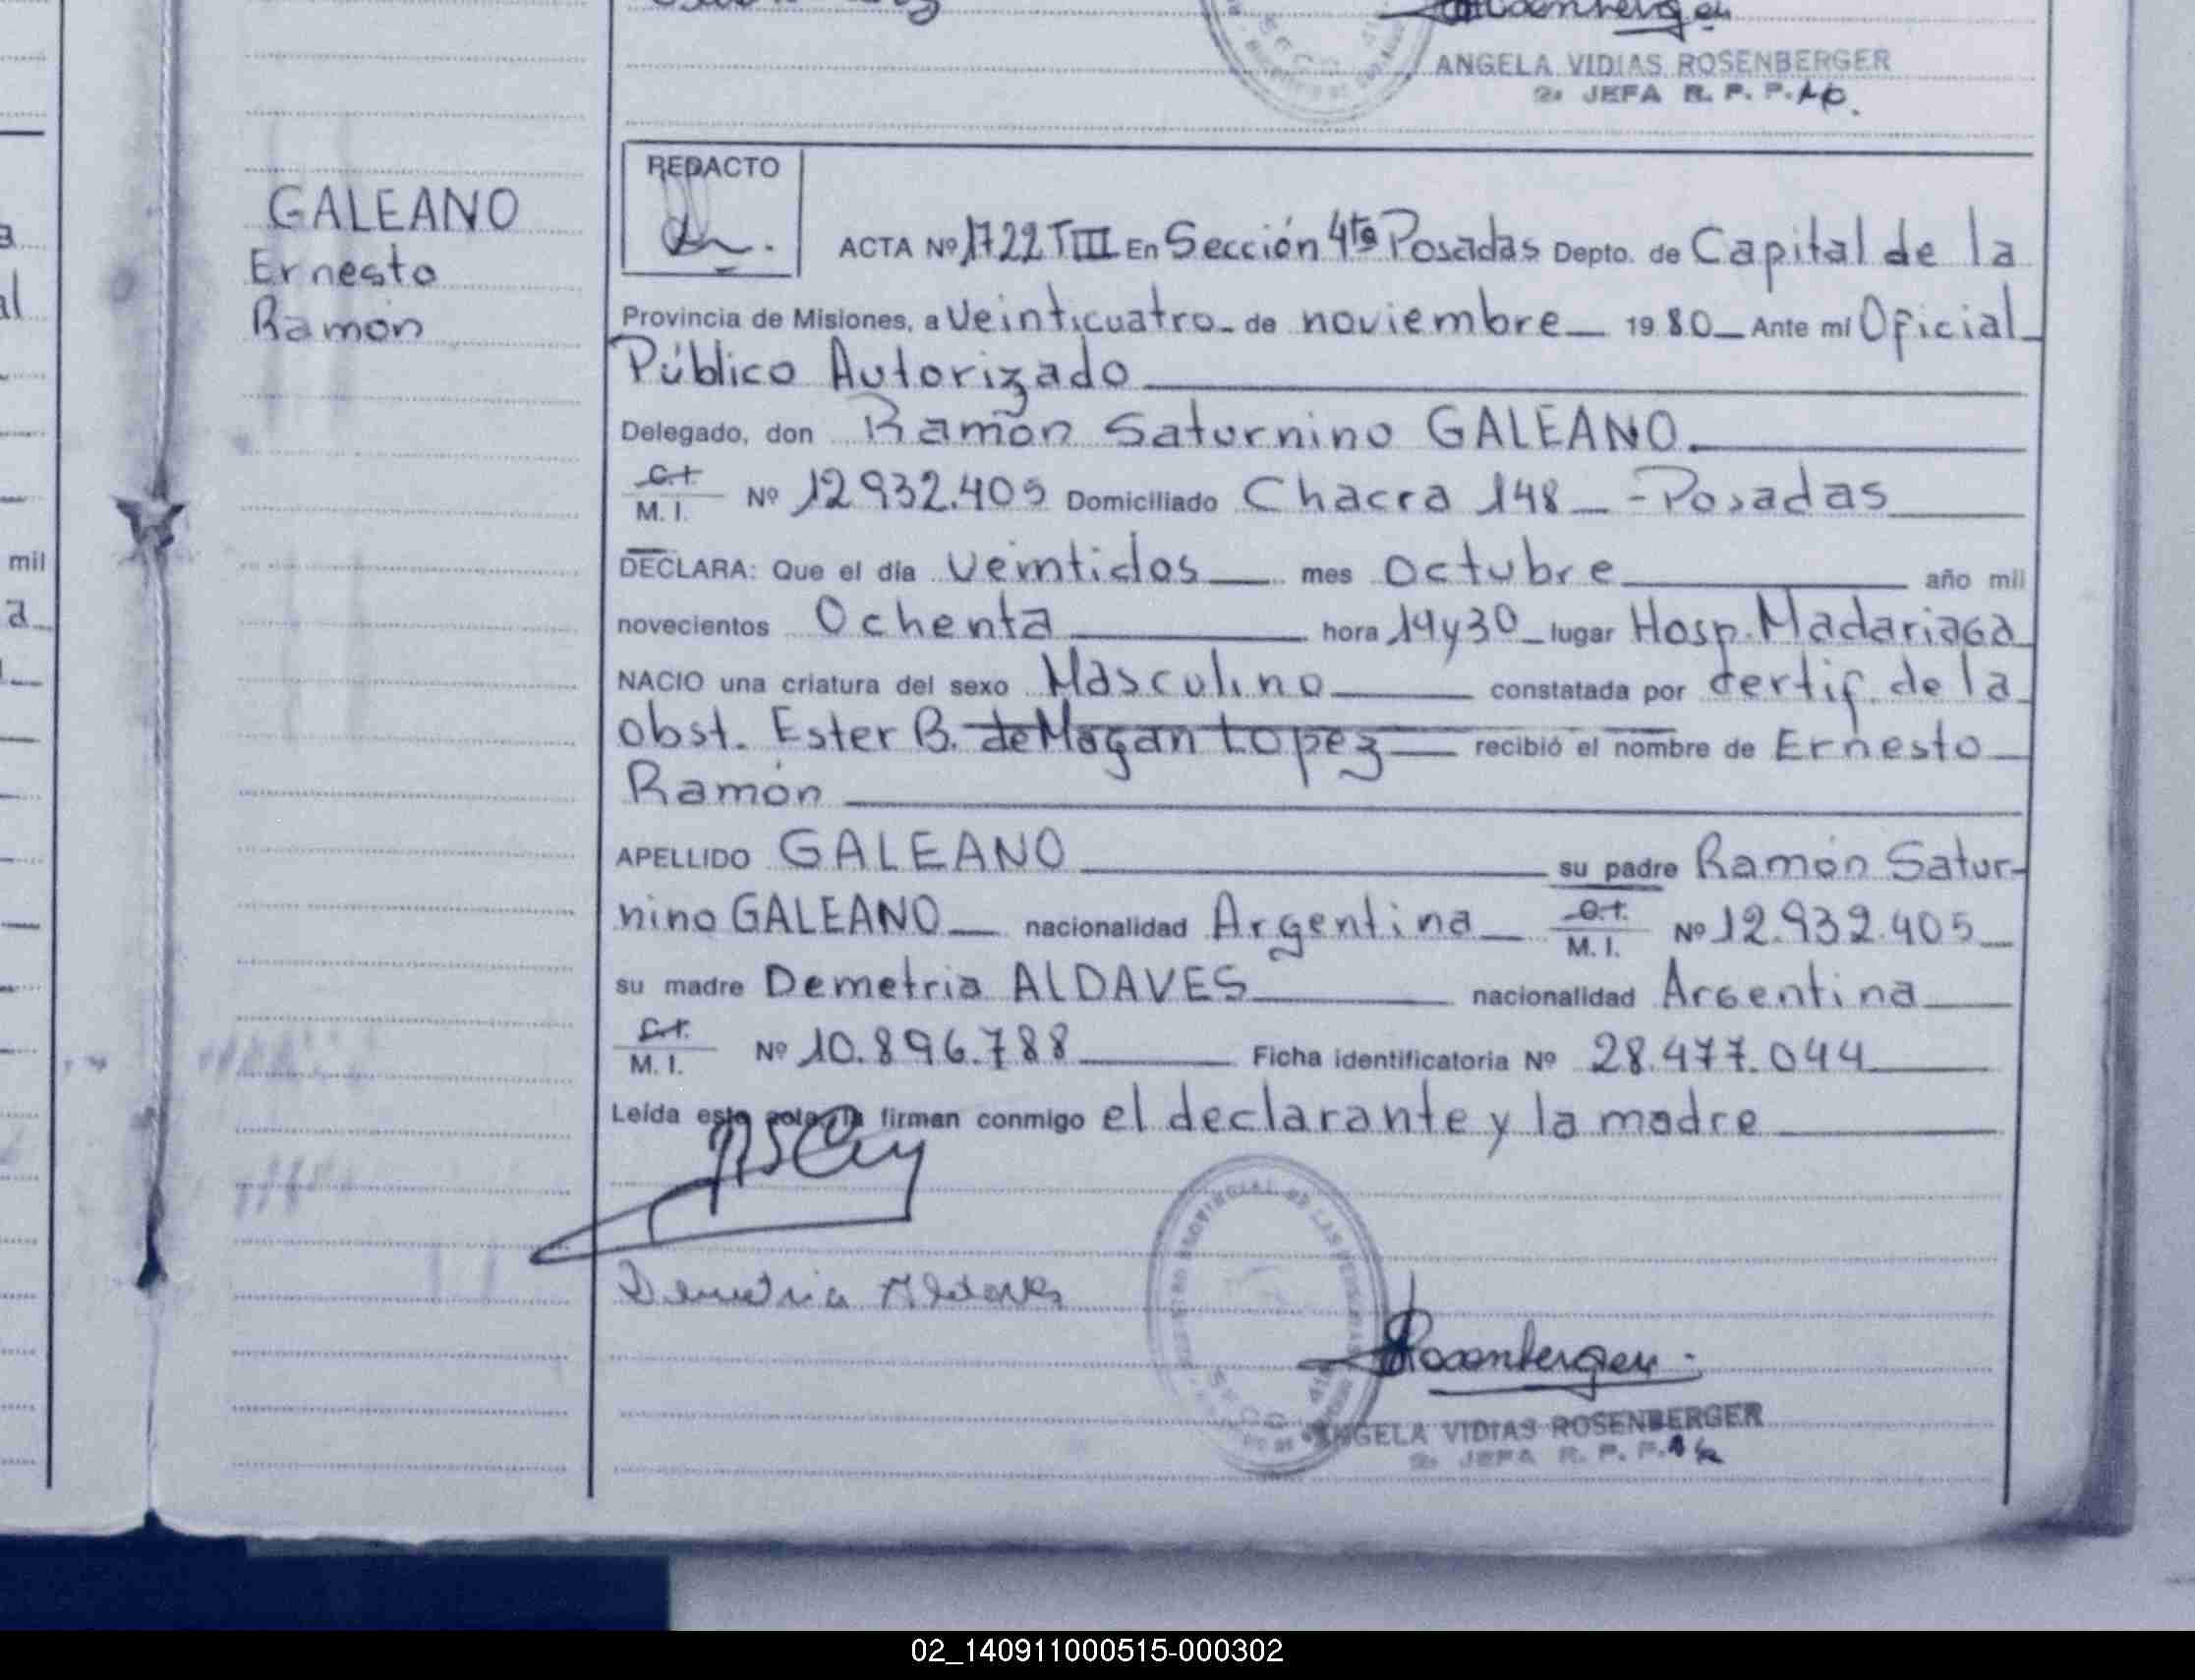 ANGELA VIDIAS ROSENBERGER
2a JEFA R. P. P.
REDACTO
GALEANO
Ernesto
Ramón
ACTA Nº 1722 TIII En Sección 4ta Posadas Depto. de Capital de la
Provincia de Misiones, a Veinticuatro de noviembre 1980 Ante mí Oficial
Público Autorizado
Delegado, don Ramón Saturnino GALEANO
C.I.
M. I. Nº 12932.405 Domiciliado Chacra 148 - Posadas
DECLARA: Que el día veintidos mes Octubre año mil
novecientos Ochenta hora 19y30 lugar Hosp. Madariaga
NACIO una criatura del sexo Masculino constatada por certif. de la
obst. Ester B. de Magan Lopez recibió el nombre de Ernesto
Ramón
APELLIDO GALEANO su padre Ramón Satur-
nino GALEANO nacionalidad Argentina C.I.
M. I. Nº 12.932.405
su madre Demetria ALDAVES nacionalidad Argentina
C.I.
M. I. Nº 10.896.788 Ficha identificatoria Nº 28.477.044
Leída esta acta, la firman conmigo el declarante y la madre
Demetria Aldaves
Rosenberger
ANGELA VIDIAS ROSENBERGER
2a JEFA R. P. P.
mil
02_140911000515-000302